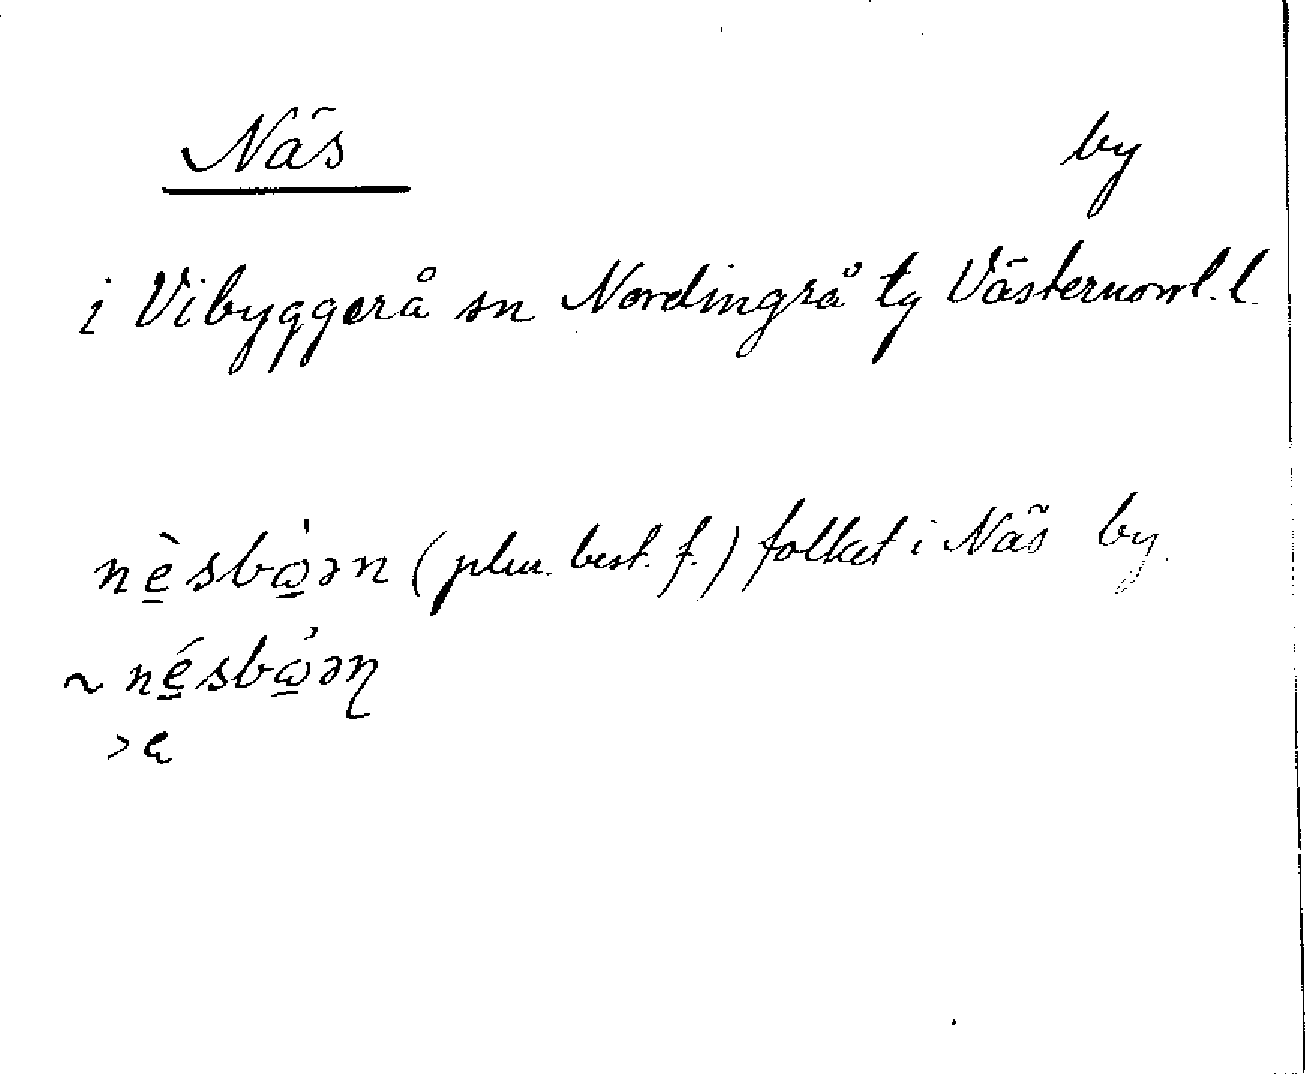 Näs by
i Vibyggerå sn Nordingrå tg Västernorrl. l.
nèsbὼən (plur. best. f.) folket i Näs by.
~ nésbὼəη
>e